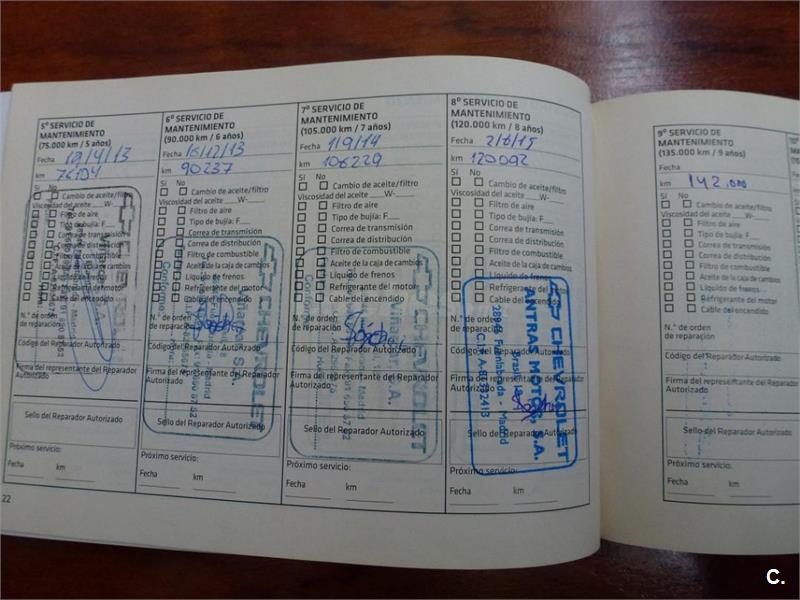 5º SERVICIO DE
MANTENIMIENTO
(75.000 km / 5 años)
Fecha 19/4/13
km 76104
Sí No
Cambio de aceite/filtro
Viscosidad del aceite W-
Filtro de aire
Tipo de bujía: F
Correa de transmisión
Correa de distribución
Filtro de combustible
Aceite de la caja de cambios
Líquido de frenos
Refrigerante del motor
Cable del encendido
N.º de orden
de reparación
Código del Reparador Autorizado
Firma del representante del Reparador
Autorizado
Sello del Reparador Autorizado
Próximo servicio:
Fecha km
22
6º SERVICIO DE
MANTENIMIENTO
(90.000 km / 6 años)
Fecha 16/12/13
km 90237
Sí No
Cambio de aceite/filtro
Viscosidad del aceite W-
Filtro de aire
Tipo de bujía: F
Correa de transmisión
Correa de distribución
Filtro de combustible
Aceite de la caja de cambios
Líquido de frenos
Refrigerante del motor
Cable del encendido
N.º de orden
de reparación
Código del Reparador Autorizado
Firma del representante del Reparador
Autorizado
Sello del Reparador Autorizado
Próximo servicio:
Fecha km
CHEVROLET
7º SERVICIO DE
MANTENIMIENTO
(105.000 km / 7 años)
Fecha 1/9/14
km 106229
Sí No
Cambio de aceite/filtro
Viscosidad del aceite W-
Filtro de aire
Tipo de bujía: F
Correa de transmisión
Correa de distribución
Filtro de combustible
Aceite de la caja de cambios
Líquido de frenos
Refrigerante del motor
Cable del encendido
N.º de orden
de reparación
Código del Reparador Autorizado
Firma del representante del Reparador
Autorizado
Sello del Reparador Autorizado
Próximo servicio:
Fecha km
CHEVROLET
8º SERVICIO DE
MANTENIMIENTO
(120.000 km / 8 años)
Fecha 2/6/15
km 120092
Sí No
Cambio de aceite/filtro
Viscosidad del aceite W-
Filtro de aire
Tipo de bujía: F
Correa de transmisión
Correa de distribución
Filtro de combustible
Aceite de la caja de cambios
Líquido de frenos
Refrigerante del
Cable del encendido
N.º de orden
de reparación
Código del Reparador Autorizado
Firma del representante del Reparador
Autorizado
Sello del Reparador Autorizado
Próximo servicio:
Fecha km
CHEVROLET
ANTRAS MOTOR, S.A.
Fuenlabrada - Madrid
9º SERVICIO DE
MANTENIMIENTO
(135.000 km / 9 años)
Fecha
km 142.000
Sí No
Cambio de aceite/filtro
Viscosidad del aceite W-
Filtro de aire
Tipo de bujía: F
Correa de transmisión
Correa de distribución
Filtro de combustible
Aceite de la caja de cambios
Líquido de frenos
Refrigerante del motor
Cable del encendido
N.º de orden
de reparación
Código del Reparador Autorizado
Firma del representante del Reparador
Autorizado
Sello del Reparador Autorizado
Próximo servicio:
Fecha km
C.